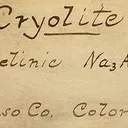 Cryolite
elinic Na3A
so Co. Color